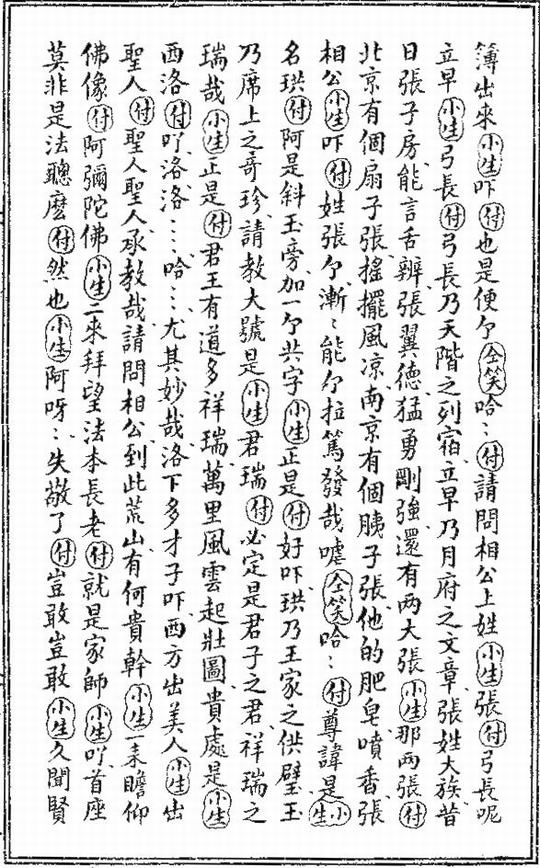 簿出來小生吓付也是便𠆤仝笑哈〻付請問相公上姓小生張付弓長呢
立早小生弓長付弓長乃天階之列宿立早乃月府之文章張姓大族昔
日張子房能言舌辨張翼德猛勇剛強還有两大張小生那两張付
北京有個扇子張搖擺風凉南京有個胰子張他的肥皂噴香張
相公小生吓付姓張𠆤漸〻能𠆤拉篤發哉嘘仝笑哈〻付尊諱是小生
名珙付阿是斜玉旁加一𠆤共字小生正是付好吓珙乃王家之供璧玉
乃席上之奇珍請教大號是小生君瑞付必定是君子之君祥瑞之
瑞哉小生正是付君王有道多祥瑞萬里風雲起壯圖貴處是小生
西洛付吖洛洛〻〻哈〻〻尤其妙哉洛下多才子吓西方出美人小生出
聖人付聖人聖人承教哉請問相公到此荒山有何貴幹小生一来瞻仰
佛像付阿彌陀佛小生二來拜望法本長老付就是家師小生吖首座
莫非是法聰麽付然也小生阿呀〻失敬了付豈敢豈敢小生久聞賢